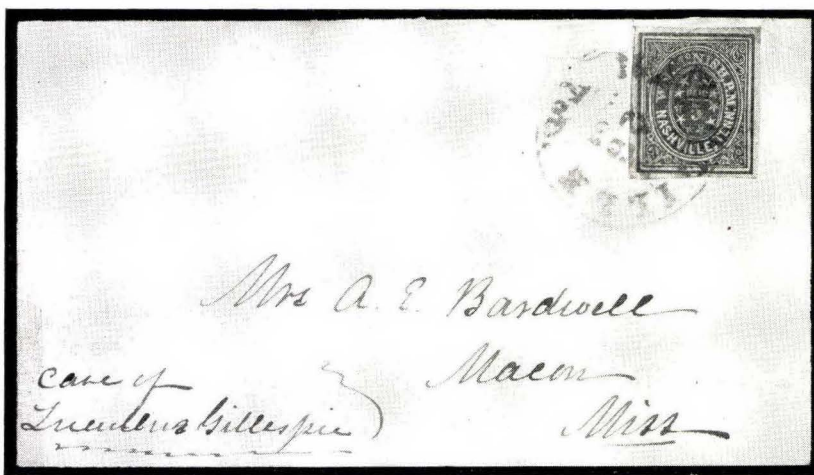 NASHVILLE, TENN.
5
Mrs A. E. Bardwell
Macon
Miss
care of
Gillespie